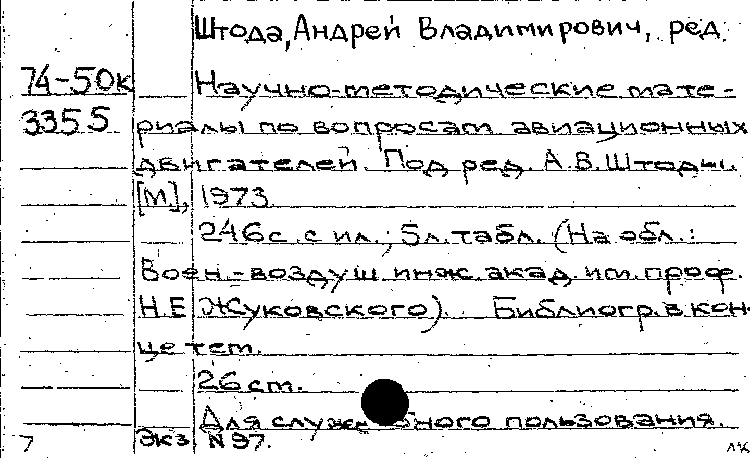 Штода, Андрей Владимирович, ред.
74-50к Научно-методические мате-
3355 риалы по вопросам авиационных
двигателей. Под ред. А.В. Штоды.
[М], 1973.
246с. с ил.; 5л. табл. (На обл.:
Воен.-воздуш. инж. акад. им. проф.
Н.Е. Жуковского). Библиогр. в кон-
це тет.
26 ст.
Для служебного пользования.
7 Экз. N 97.